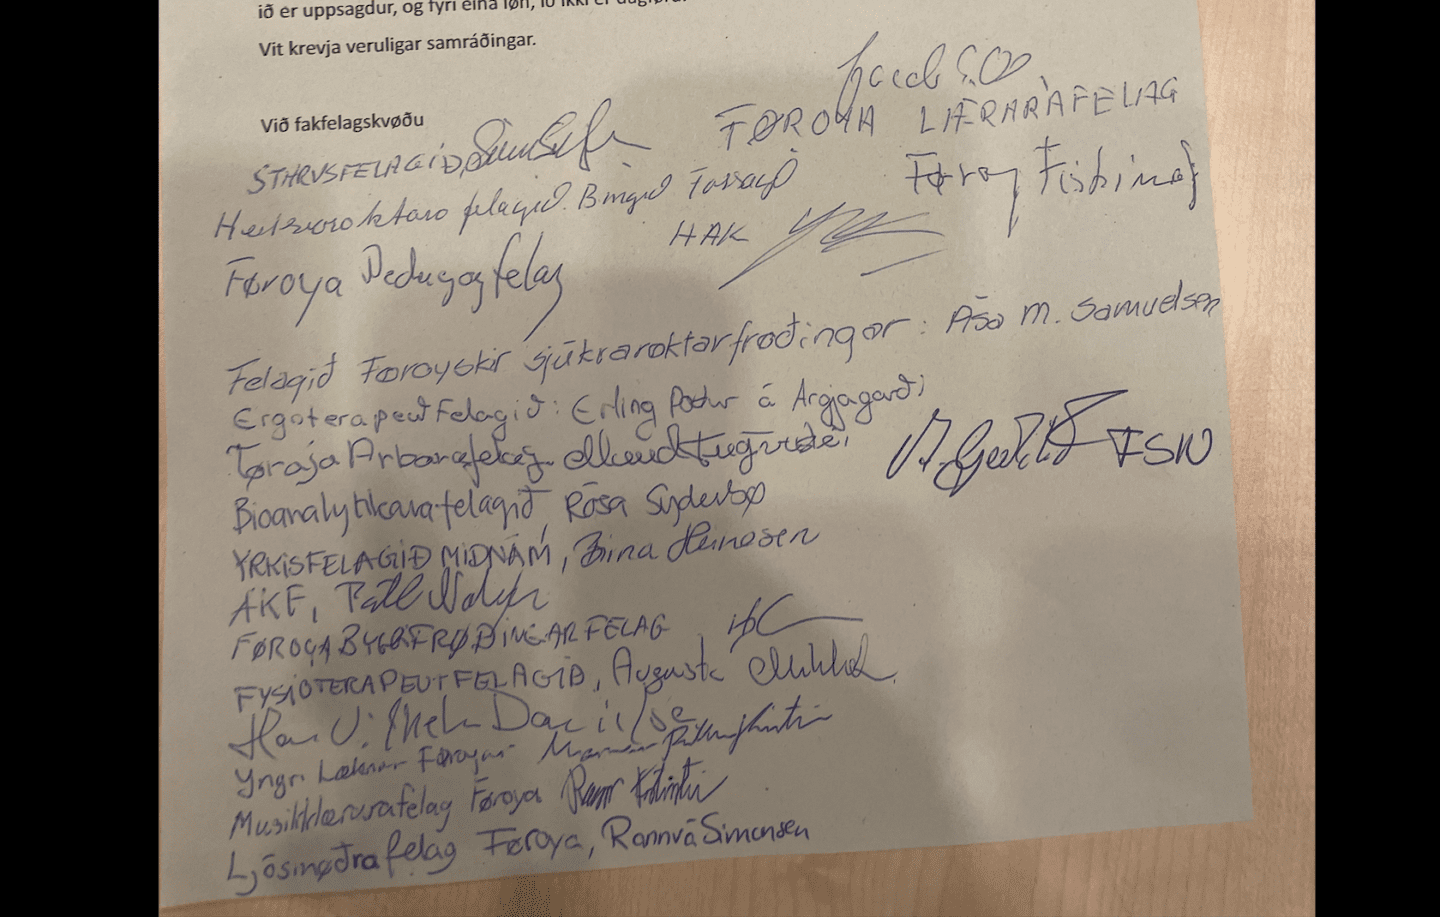 ið er uppsagdur, og fyri eina løn, ið ikki er dagførd.
Vit krevja veruligar samráðingar.
Við fakfelagskvøðu
FØROYA LÆRARAFELAG
STARVSFELAGIÐ,
Heilsurøktarafelagið. Birgið
Føroy Fiskimaf
HAK
Føroya Pedagogfelag
Felagið Føroyskir sjúkrarøktarfrøðingar: Ása M. Samuelsen
Ergoterapeutfelagið: Erling Poulur á Argjagarði
Føroja Arbarafelag
FSN
Bioanalytikarafelagið, Rósa Syderbø
YRKISFELAGIÐ MIÐNÁM, Bina Heinesen
AKF,
FØROYA BYGGIFRØÐINGARFELAG
FYSIOTERAPEUTFELAGIÐ, Augusta
Yngri Læknar Føroyar
Musikklærarafelag Føroya
Ljósmøðrafelag Føroya, Rannvá Simonsen